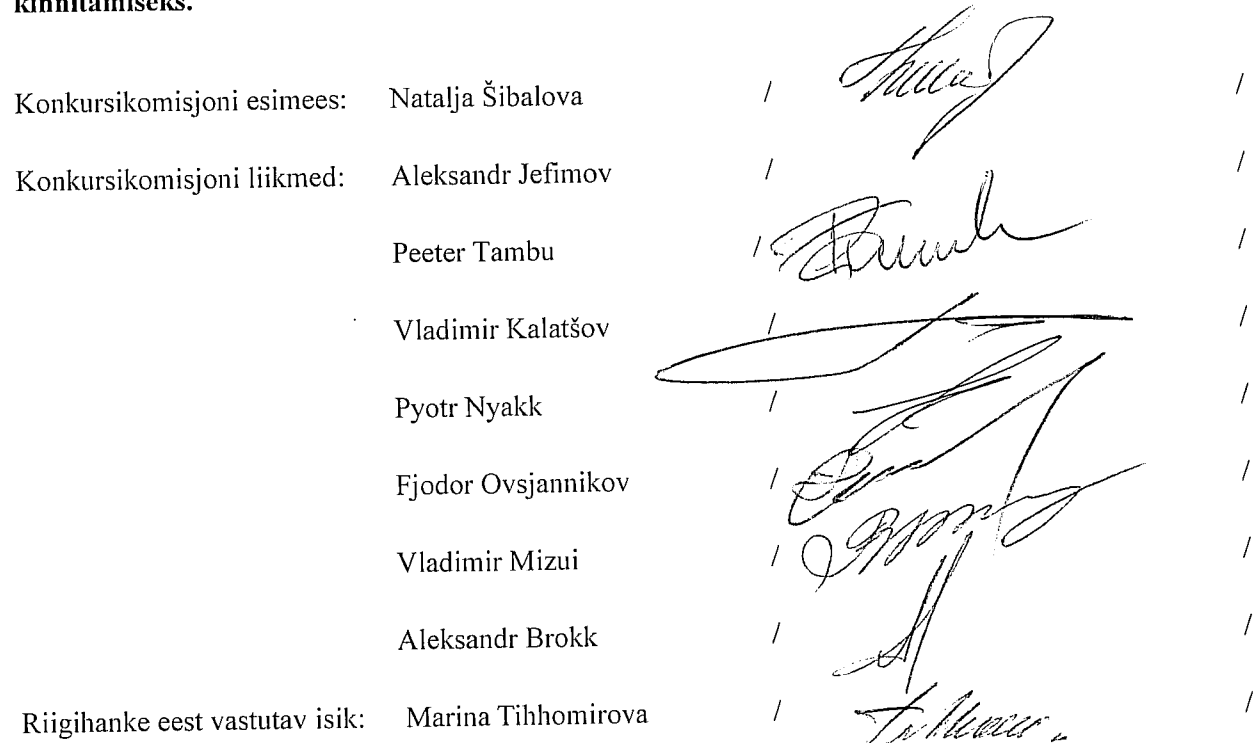 kinnitamiseks.
Konkursikomisjoni esimees: Natalja Šibalova / /
Konkursikomisjoni liikmed: Aleksandr Jefimov / /
Peeter Tambu / /
Vladimir Kalatšov / /
Pyotr Nyakk / /
Fjodor Ovsjannikov / /
Vladimir Mizui / /
Aleksandr Brokk / /
Riigihanke eest vastutav isik: Marina Tihhomirova / /